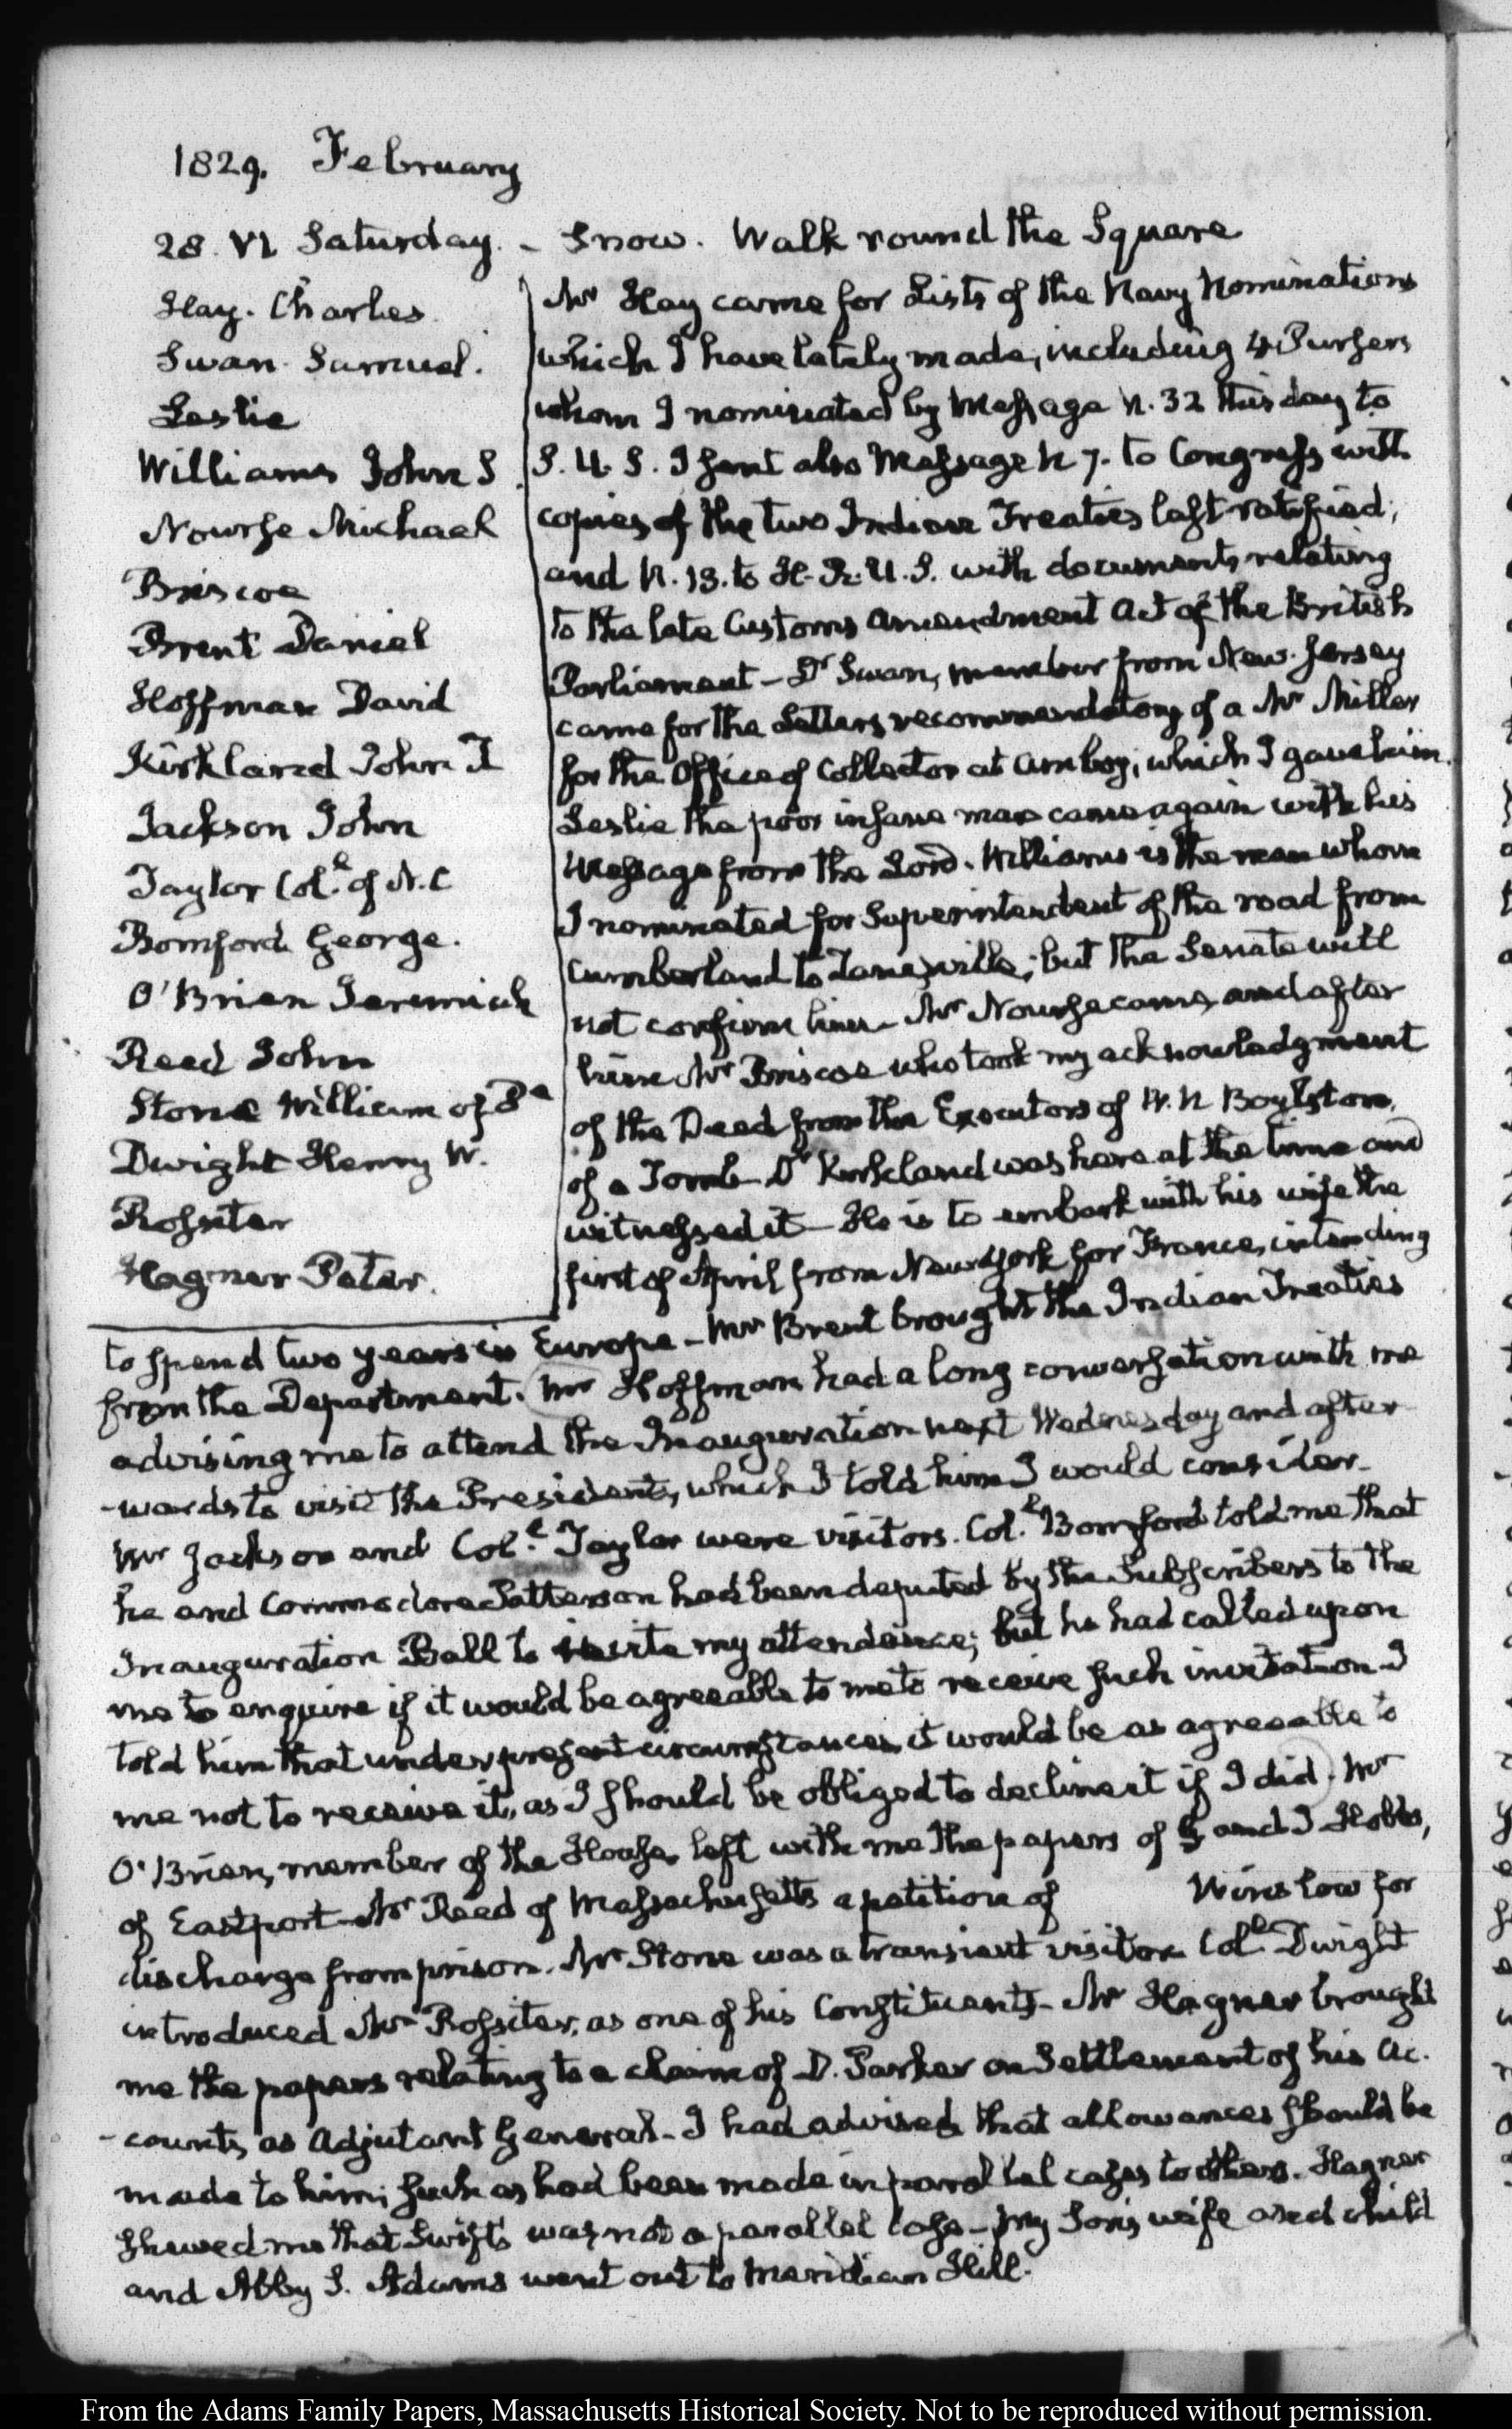 1829. February
28. VI. Saturday. - Snow. Walk round the Square
Hay. Charles.
Swan. Samuel.
Leslie
Williams John S
Nourse Michael
Briscoe
Brent Daniel
Hoffman David
Kirkland John T
Jackson John
Taylor Col.l of N.C
Bomford George.
O'Brien Jeremiah
Reed John
Stone William of
Dwight Henry W.
Rossiter
Hagner Peter.
Mr Hay came for Lists of the Navy Nominations
which I have lately made, including 4 Pursers
whom I nominated by Message N. 32 this day to
S. U. S. I sent also Message N 7. to Congress with
copies of the two Indian Treaties last ratified,
and N. 13. to H. R. U. S. with documents relating
to the late Customs amendment Act of the British
Parliament - Dr Swan, member from New-Jersey
came for the Letters recommendatory of a Mr Miller
for the Office of Collector at Amboy; which I gave him.
Leslie the poor insane man came again with his
Message from the Lord. Williams is the man whom
I nominated for Superintendent of the road from
Cumberland to Zanesville; but the Senate will
not confirm him - Mr Nourse came, and after
him Mr Briscoe who took my acknowledgment
of the Deed from the Executors of W. N Boylston,
of a Tomb - Dr Kirkland was here at the time and
witnessed it - He is to embark with his wife the
first of April from New York for France, intending
to spend two years in Europe - Mr Brent brought the Indian Treaties
from the Department. Mr Hoffman had a long conversation with me
advising me to attend the Inauguration next Wednesday and after
-wards to visit the President, which I told him I would consider.
Mr Jackson and Col.l Taylor were visitors. Col.l Bomford told me that
he and Commodore Patterson had been deputed by the Subscribers to the
Inauguration Ball to invite my attendance; but he had called upon
me to enquire if it would be agreeable to me to receive such invitation I
told him that under present circumstances it would be as agreeable to
me not to receive it, as I should be obliged to decline it if I did. Mr
O'Brien, member of the House, left with me the papers of and I Hobbs,
of Eastport - Mr Reed of Massachusetts a petition of Winslow for
discharge from prison. Mr Stone was a transient visitor. Col.l Dwight
introduced Mr Rossiter, as one of his Constituents - Mr Hagner brought
me the papers relating to a claim of D. Parker on Settlement of his Ac.
-counts, as Adjutant General - I had advised that allowances should be
made to him; such as had been made in parallel cases to others. Hagner
shewed me that Swift's was not a parallel case - My Son's wife and child
and Abby S. Adams went out to Meridian Hill.
From the Adams Family Papers, Massachusetts Historical Society. Not to be reproduced without permission.